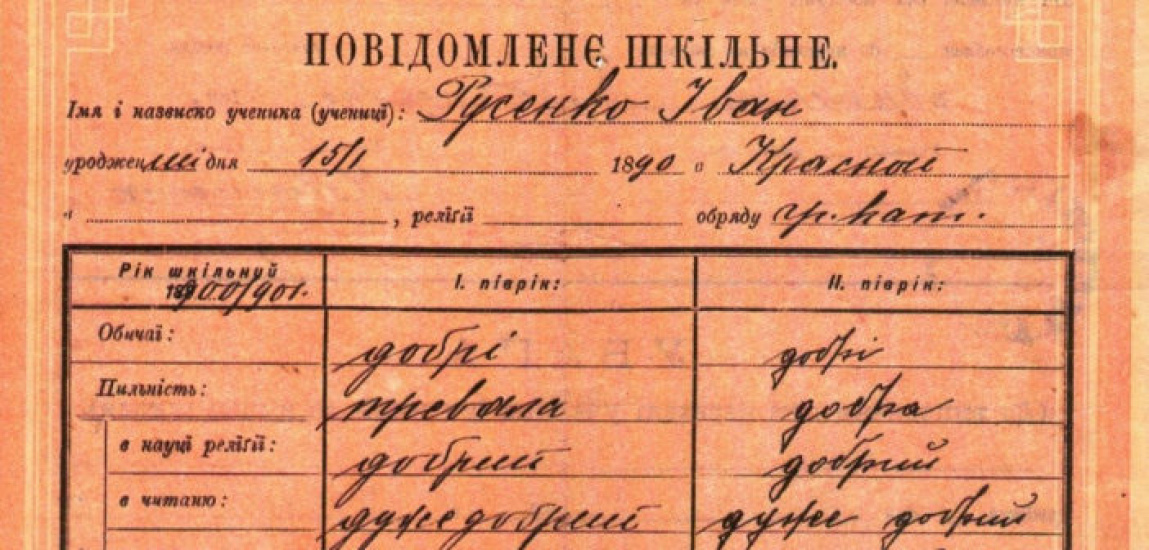 ПОВІДОМЛЕНЄ ШКІЛЬНЕ.
Імя і назвиско ученика (учениці): Русенко Іван
уроджений дня 15/1 1890 в Красной
в , реліґії обряду гр. кат.
Рік шкільний І. піврік: ІІ. піврік:
1900/901.
Обичаї: добрі добрі
Пильність: тревала добра
в науці реліґії: добрий добрий
в читаню: дуже добрий дуже добрий